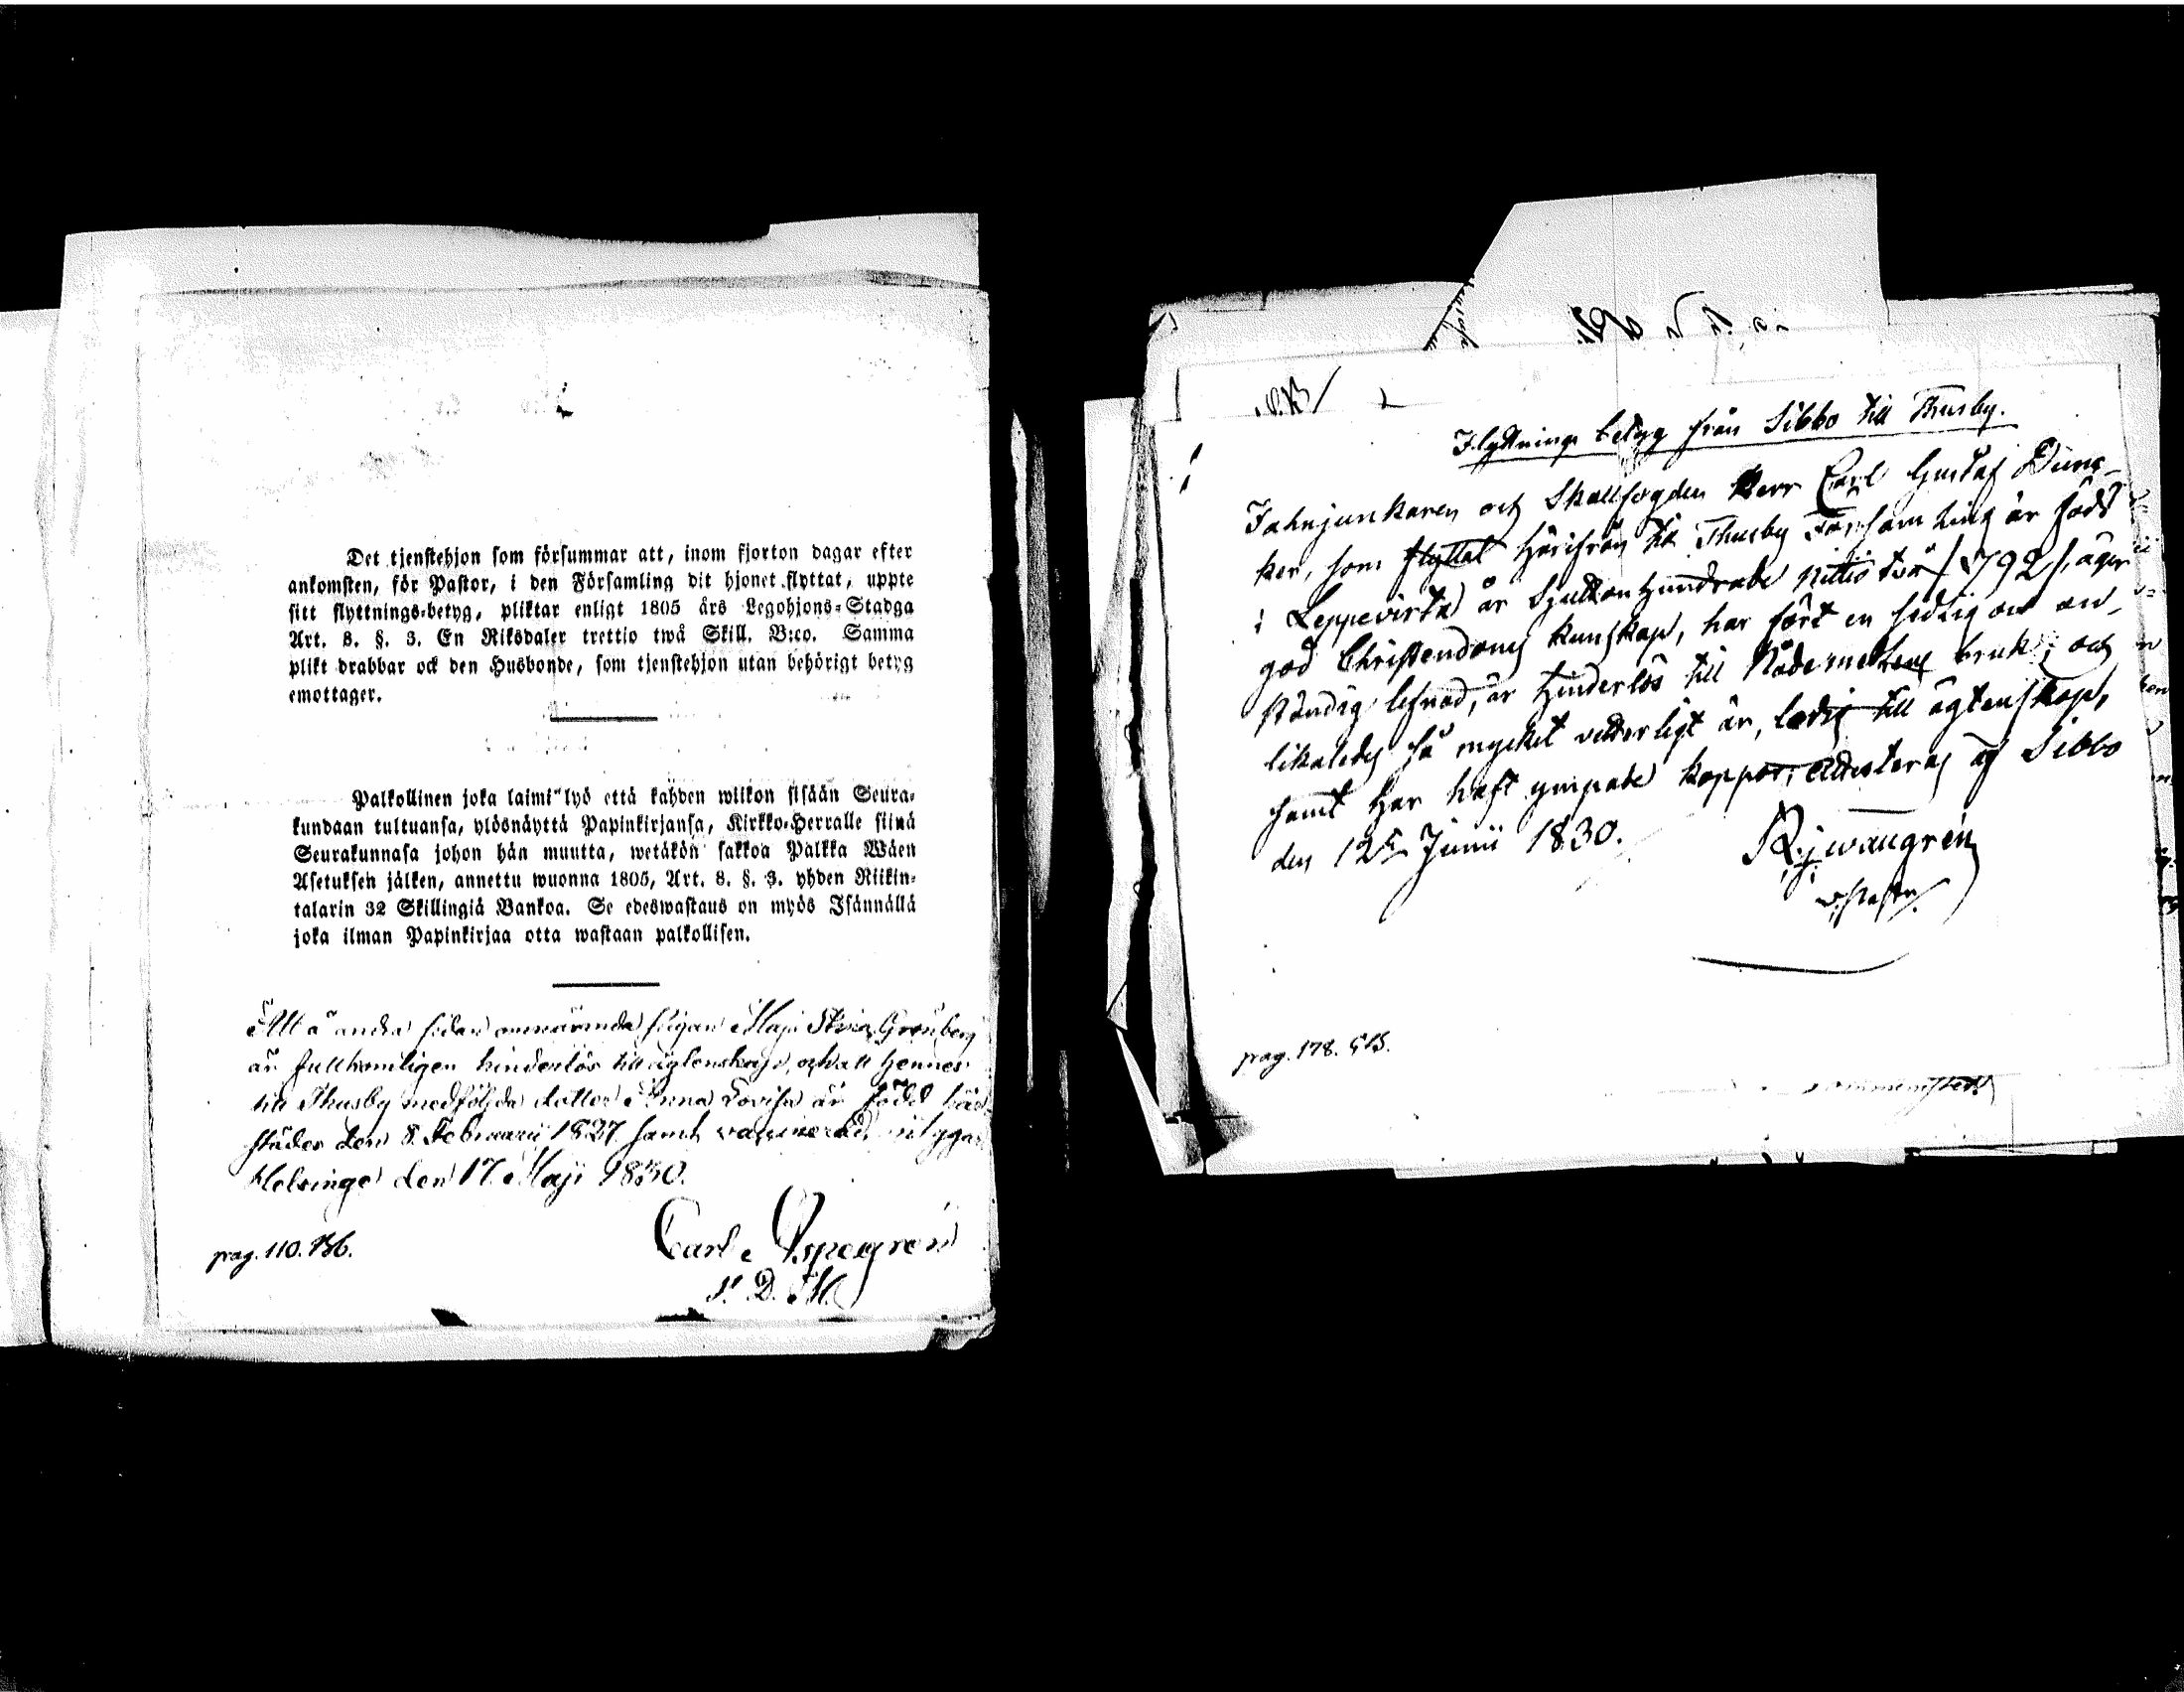 Det tjenstehjon som försummar att, inom fjorton dagar efter
ankomsten, för Pastor, i den Församling dit hjonet flyttat, uppte
sitt flyttnings-betyg, pliktar enligt 1805 års Legohjons-Stadga
Art. 8. §. 3. En Riksdaler trettio twå Skill. B:co. Samma
plikt drabbar ock den Husbonde, som tjenstehjon utan behörigt betyg
emottager.
Palkollinen joka laimi lyö että kahden wiikon sisään Seura-
kundaan tultuansa, ylösnäyttä Papinkirjansa, Kirkko-Herralle siinä
Seurakunnasa johon hän muutta, wetäkön sakkoa Palkka Wäen
Asetuksen jälken, annettu wuonna 1805, Art. 8. §. 3. yhden Riikin-
talarin 32 Skillingiä Bankoa. Se edeswastaus on myös Isännällä
joka ilman Papinkirjaa otta wastaan palkollisen.
Att å andra sidan omnämnda pigan Maja Stina Grönberg
är fullkomligen hinderlös till ägtenskap, och att hennes
till Thusby medföljda dotter Anna Lovisa är född här
städes den 8 Februarii 1827 samt vaccinerad, intygar
Helsinge den 17 Maji 1830.
Carl Aspegren
pag. 110. 136.
Flyttnings betyg från Sibbo till Thusby.
Fahnjunkaren och Skallfogden Herr Carl Gustaf Dunc-
ker, som flyttat härifrån till Thusby Församling är född
i Leppevirta år Sjuttonhundrade nittio två /1792/, äger
god Christendoms kunskap, har fört en sedlig och an-
ständig lefnad, är hinderlös till Nådemedlens bruk, och
likaledes så mycket vetterligt är, ledig till ägtenskap,
samt har haft ympade koppor, Attesteras af Sibbo
den 12 Junii 1830.
v. Pastor.
pag. 178.